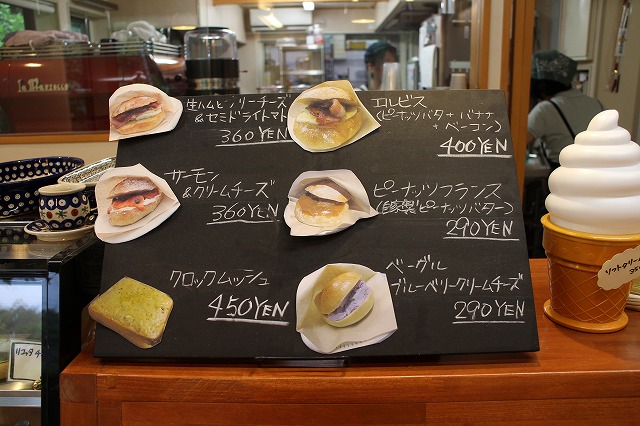 生ハムとブリーチーズ
&セミドライトマト
360YEN
エルビス
(ピーナッツバター+バナナ
+ベーコン)
400YEN
サーモン
&クリームチーズ
360YEN
ピーナッツフランス
(自家製ピーナッツバター)
290YEN
クロックムッシュ
450YEN
ベーグル
ブルーベリークリームチーズ
290YEN
ソフトクリーム
リコッタチ